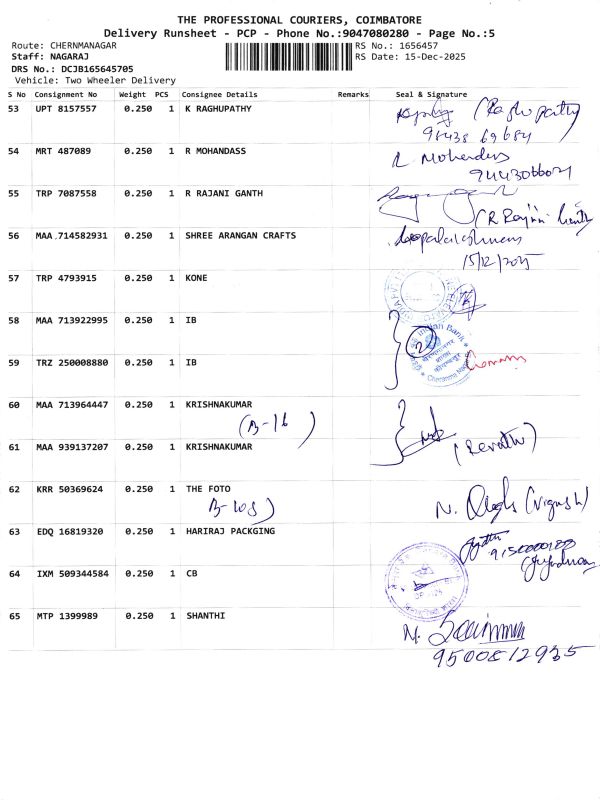 THE PROFESSIONAL COURIERS, COIMBATORE
Delivery Runsheet - PCP - Phone No.:9047080280 - Page No.:5
Route: CHERNMANAGAR RS No.: 1656457
Staff: NAGARAJ RS Date: 15-Dec-2025
DRS No.: DCJB165645705
Vehicle: Two Wheeler Delivery
S No Consignment No Weight PCS Consignee Details Remarks Seal & Signature
53 UPT 8157557 0.250 1 K RAGHUPATHY
(Raghupathy
54 MRT 487089 0.250 1 R MOHANDASS
R. Mohandass
55 TRP 7087558 0.250 1 R RAJANI GANTH
56 MAA 714582931 0.250 1 SHREE ARANGAN CRAFTS
15/12/2025
57 TRP 4793915 0.250 1 KONE
58 MAA 713922995 0.250 1 IB
2
Indian Bank
59 TRZ 250008880 0.250 1 IB
60 MAA 713964447 0.250 1 KRISHNAKUMAR
(B-16)
61 MAA 939137207 0.250 1 KRISHNAKUMAR
(Revathi)
62 KRR 50369624 0.250 1 THE FOTO
B-108)
(Vignesh)
63 EDQ 16819320 0.250 1 HARIRAJ PACKGING
64 IXM 509344584 0.250 1 CB
65 MTP 1399989 0.250 1 SHANTHI
9500812935